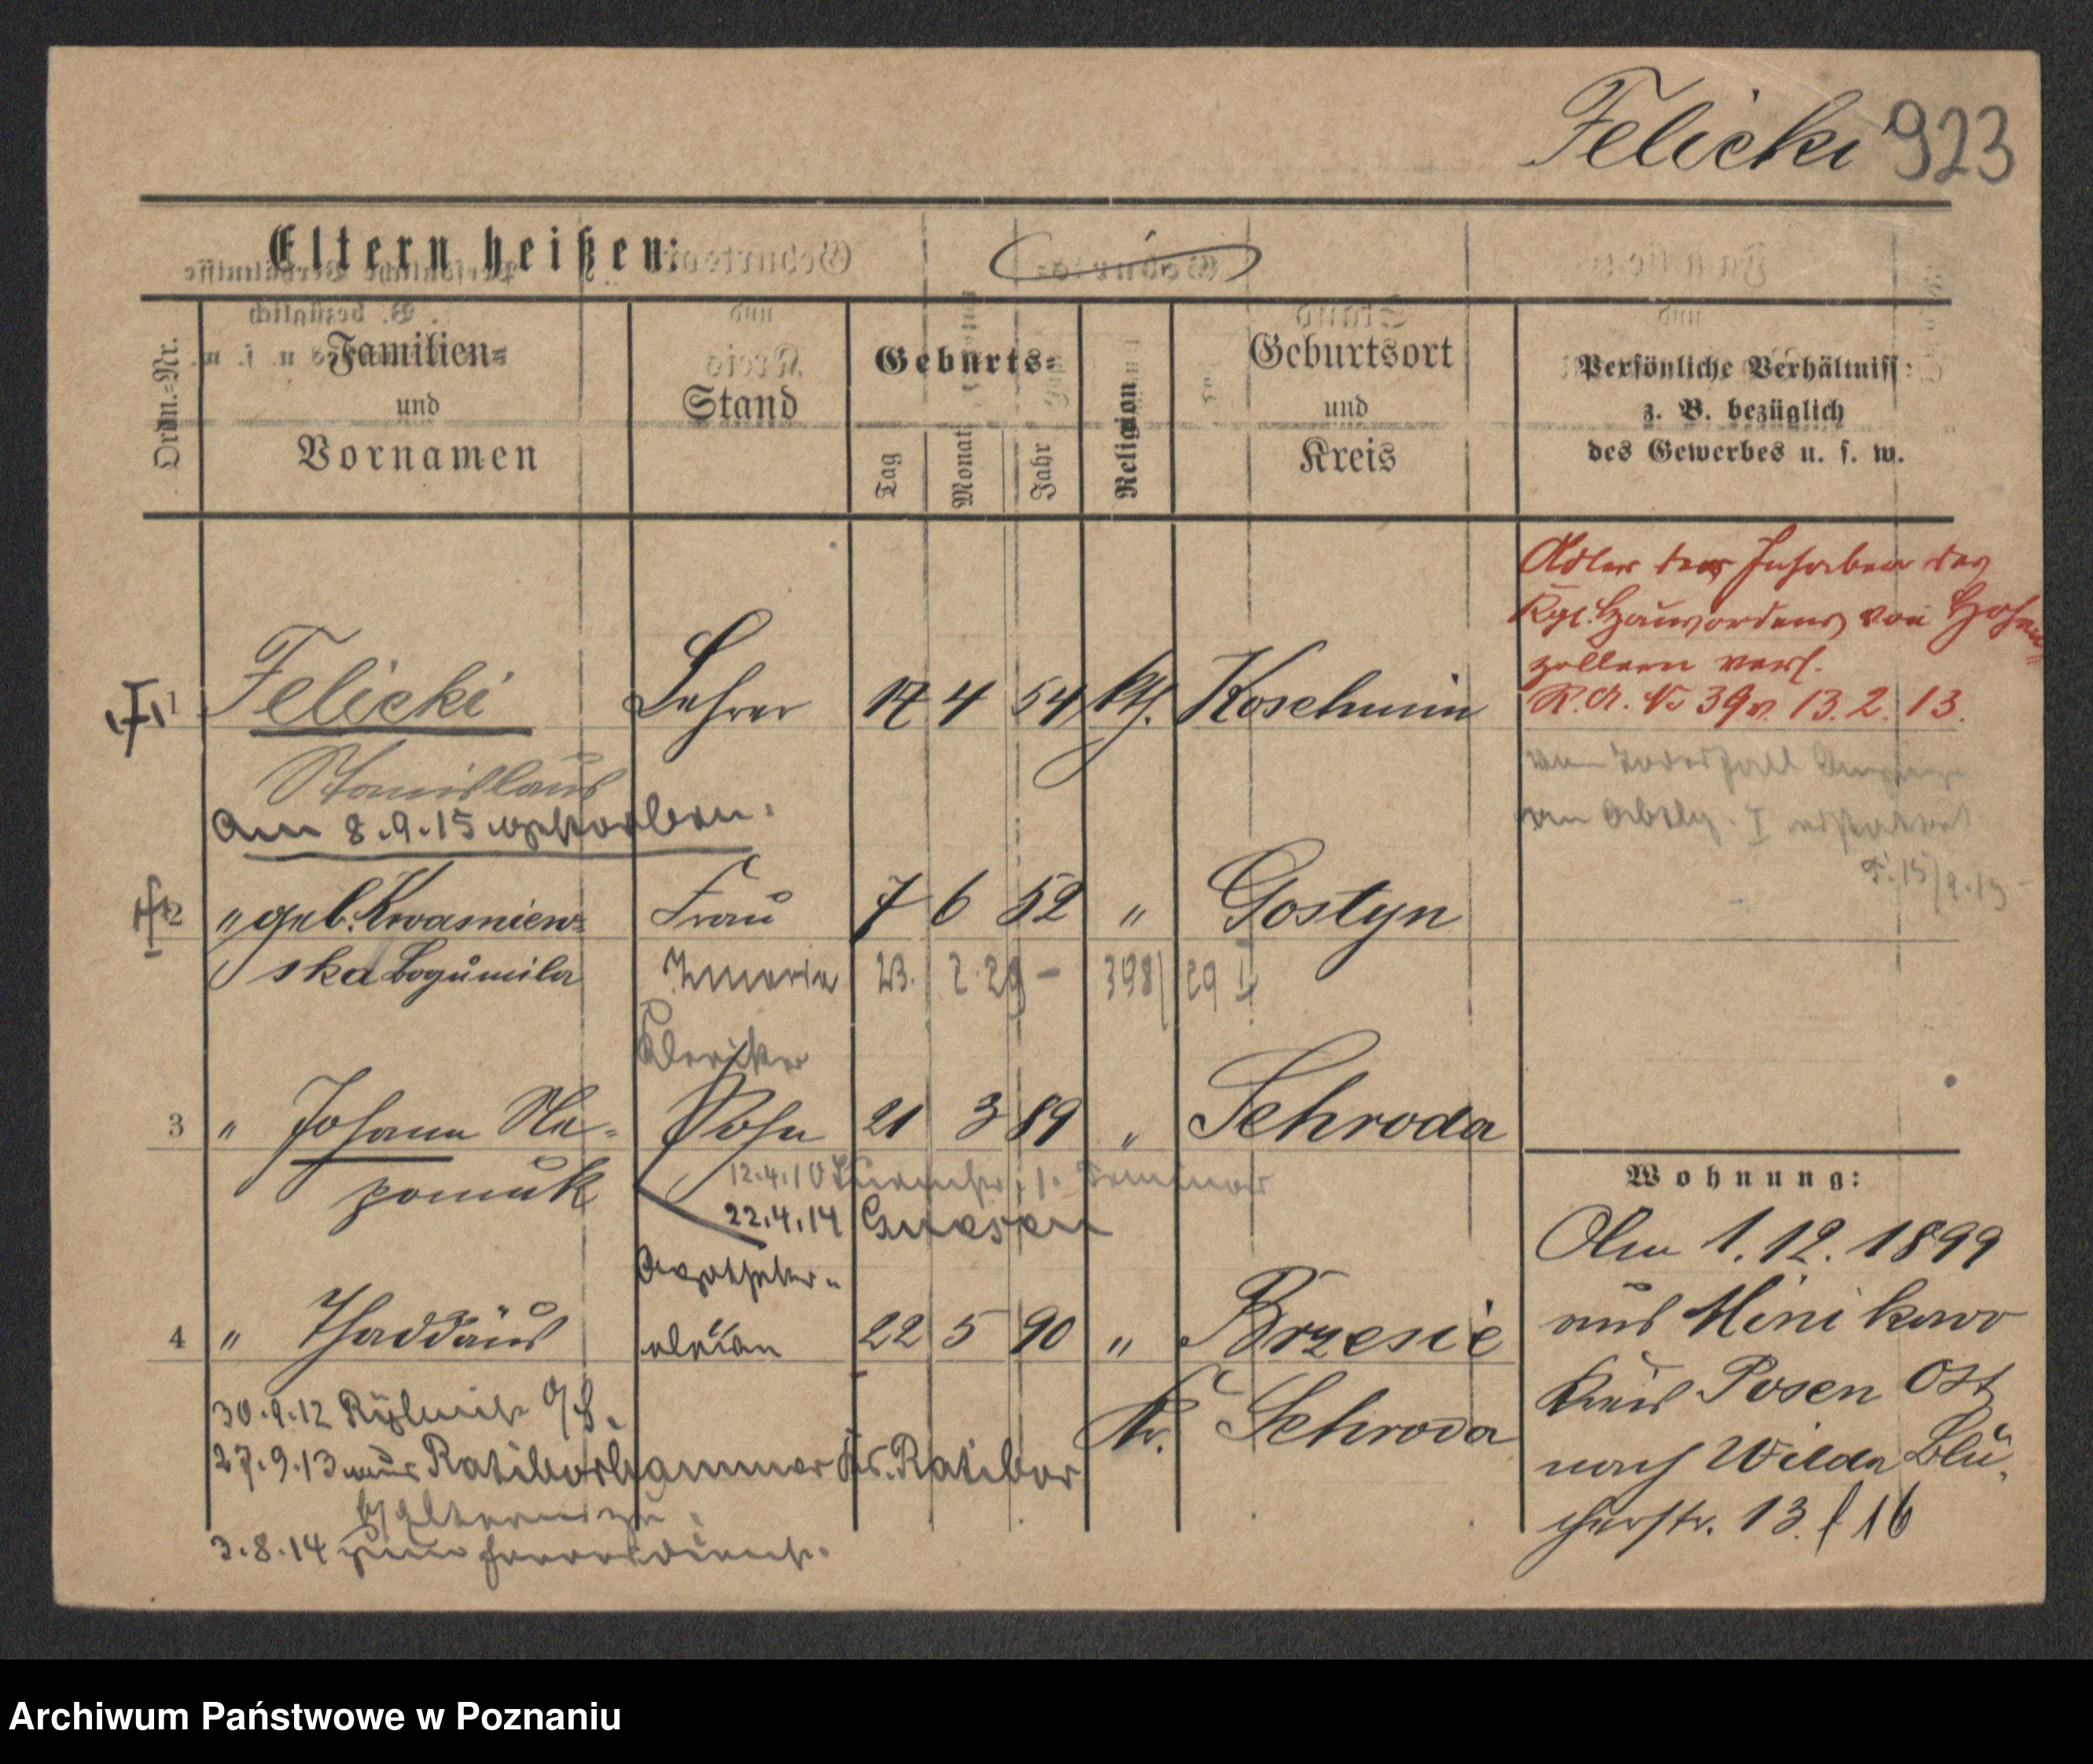 Felicki 923
Eltern heißen:
Ordn.-Nr.
Familien-
und
Vornamen
Stand
Geburts-
Tag
Monat
Jahr
Religion
Geburtsort
und
Kreis
Persönliche Verhältniss:
z. B. bezüglich
des Gewerbes u. s. w.
Adler der Inhaber des
Kgl. Hausordens von Hohen-
zollern verl.
R. A. No 39 v. 13. 2. 13.
1 Felicki Lehrer 17 4 54 kth. Koschmin
Stanislaus
am 8.9.15 gestorben.
2 " geb. Kwasniew- Frau 7 6 52 " Gostyn
ska Bogumila
Zmarła 23. 2. 29 - 398/29 I
Kleriker
3 " Johann Ne- Sohn 21 3 89 " Schroda
pomuk
12.4.10
22.4.14 Gnesen
Apotheker-
eleve
4 " Thaddäus 22 5 90 " Brzesie
Kr. Schroda
30.9.12 Rybnik O/S.
27.9.13 aus Ratiborhammer Kr. Ratibor
3.8.14 zum Heeresdienst.
Wohnung:
Am 1. 12. 1899
aus Minikowo
Kreis Posen Ost
nach Wilda Blü-
cherstr. 13. / 16
Archiwum Państwowe w Poznaniu